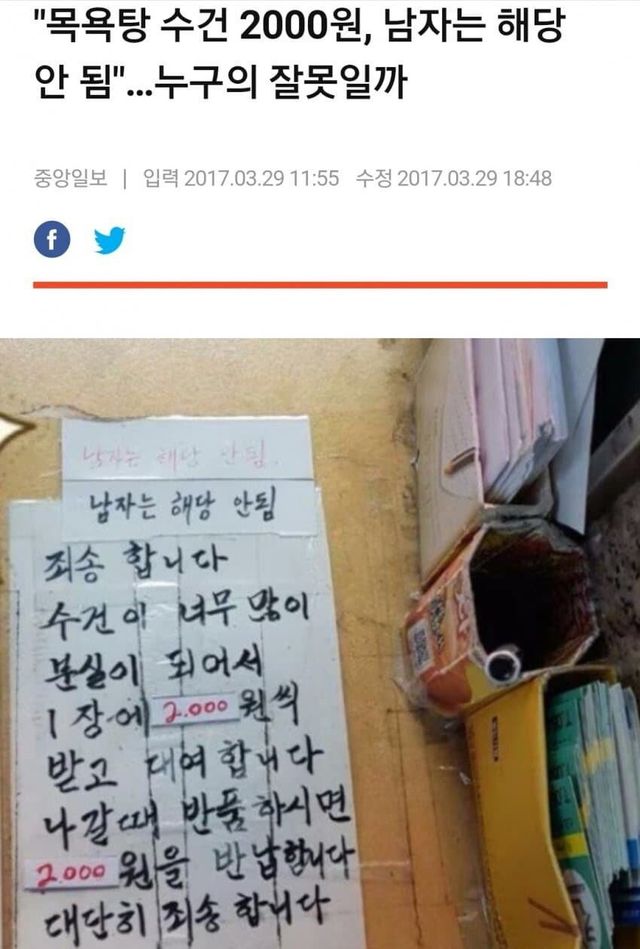 "목욕탕 수건 2000원, 남자는 해당
안 됨"...누구의 잘못일까
중앙일보 | 입력 2017.03.29 11:55 수정 2017.03.29 18:48
f
남자는 해당 안됨.
남자는 해당 안됨
죄송 합니다
수건이 너무 많이
분실이 되어서
1장에 2.000원씩
받고 대여 합니다
나갈때 반품하시면
2.000원을 반납합니다
대단히 죄송합니다